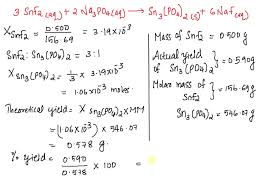 3 SnF₂(aq) + 2 Na₃PO₄(aq) → Sn₃(PO₄)₂(s) + 6 NaF(aq)
X SnF₂ = 0.500 / 156.69 = 3.19×10⁻³
SnF₂ : Sn₃(PO₄)₂ = 3:1
X Sn₃(PO₄)₂ = 1/3 × 3.19×10⁻³
= 1.06×10⁻³ moles
Theoretical yield = X Sn₃(PO₄)₂ × MM
= (1.06×10⁻³) × 546.07
= 0.578 g.
% yield = 0.590 / 0.578 × 100 =
Mass of SnF₂ = 0.500 g
Actual yield of Sn₃(PO₄)₂ } = 0.590g
Molar mass of SnF₂ } = 156.69 g
Sn₃(PO₄)₂ = 546.07 g